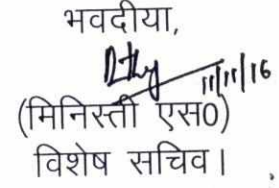 भवदीया,
11/11/16
(मिनिस्ती एस0)
विशेष सचिव।